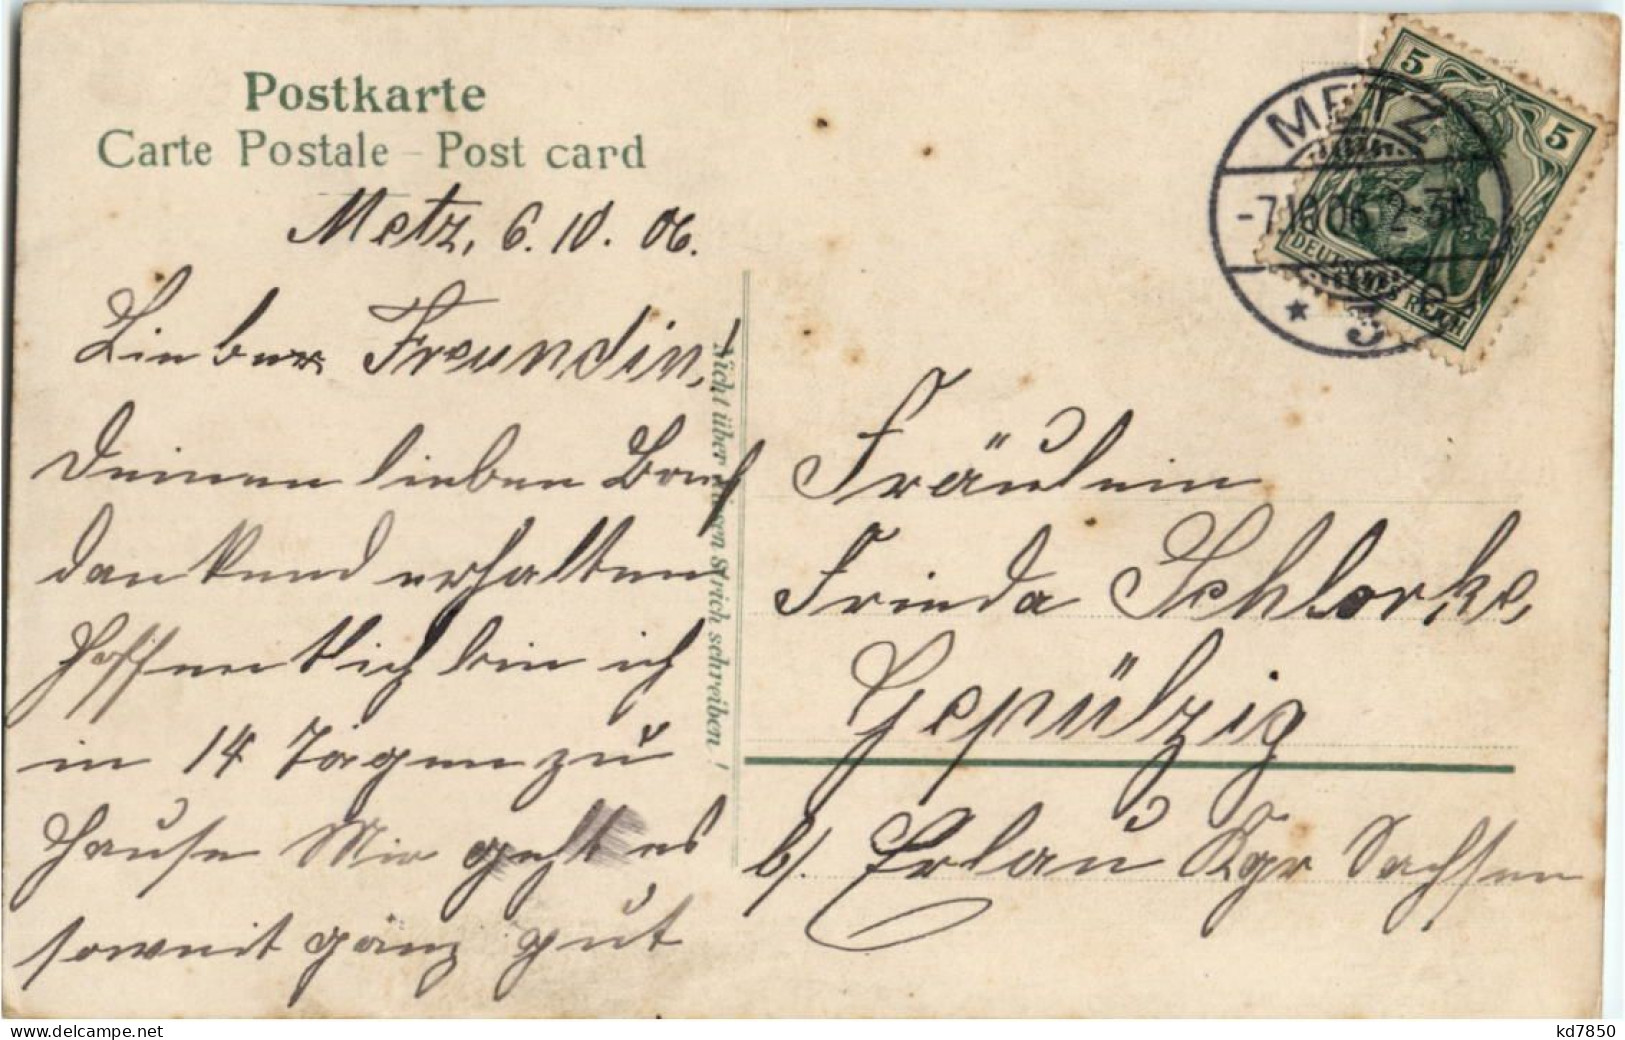 Postkarte
Carte Postale – Post card
Metz, 6.10.06.
Lieber Freundin,
Deinen lieben Brief
dankend erhalten
hoffentlich bin ich
in 14 Tagen zu
Hause Mir geht es
soweit ganz gut
Nicht über diesen Strich schreiben!
METZ
-7.10.06. 2-3N
* 3
5 5
DEUTSCHES REICH
Fräulein
Frieda Schlorke,
Gepülzig
b/. Erlau Kgr Sachsen
www.delcampe.net
kd7850